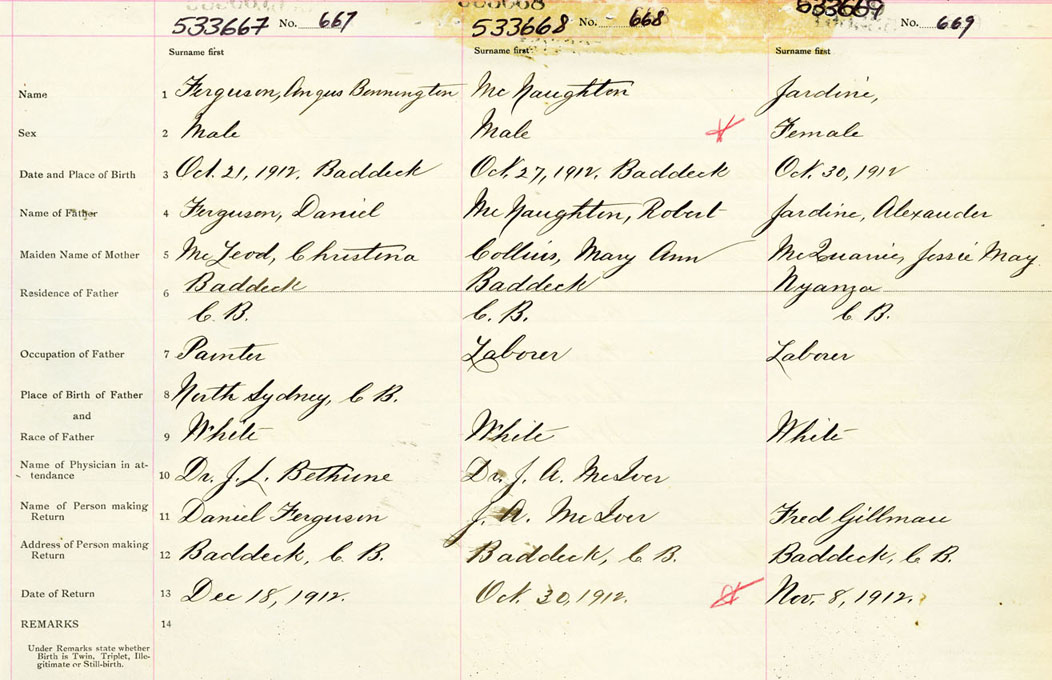 533667 No. 667 533668 No. 668 533669 No. 669
Surname first Surname first Surname first
Name 1 Ferguson, Angus Bonnington McNaughton Jardine,
Sex 2 Male Male Female
Date and Place of Birth 3 Oct. 21, 1912. Baddeck Oct. 27, 1912. Baddeck Oct. 30, 1912
Name of Father 4 Ferguson, Daniel McNaughton, Robert Jardine, Alexander
Maiden Name of Mother 5 McLeod, Christina Collins, Mary Ann McQuarrie, Jessie May
Residence of Father 6 Baddeck Baddeck Nyanza
C. B. C. B. C B.
Occupation of Father 7 Painter Laborer Laborer
Place of Birth of Father 8 North Sydney, C B.
and
Race of Father 9 White White White
Name of Physician in at-
tendance 10 Dr. J. L. Bethune Dr. J. A. McIver
Name of Person making
Return 11 Daniel Ferguson J. A. McIver Fred Gillman
Address of Person making
Return 12 Baddeck, C B. Baddeck, C B. Baddeck, C B.
Date of Return 13 Dec 18, 1912. Oct. 30, 1912. Nov. 8, 1912.
REMARKS 14
Under Remarks state whether
Birth is Twin, Triplet, Ille-
gitimate or Still-birth.